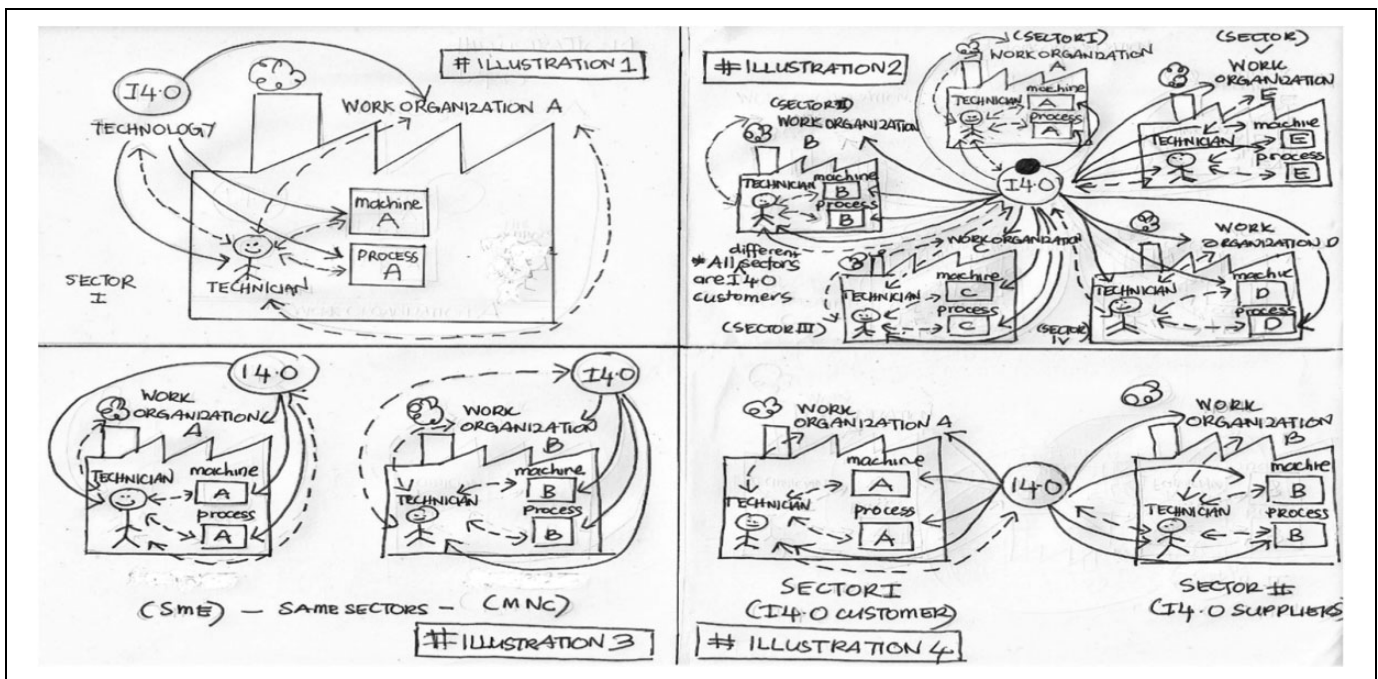 # ILLUSTRATION 1
I4.0
TECHNOLOGY
WORK ORGANIZATION A
machine
A
PROCESS
A
TECHNICIAN
SECTOR
I
# ILLUSTRATION 2
(SECTOR I)
WORK ORGANIZATION
A
TECHNICIAN
machine
A
process
A
(SECTOR)
V
WORK
ORGANIZATION
E
TECHNICIAN
machine
E
process
E
(SECTOR II)
WORK ORGANIZATION
B
TECHNICIAN
machine
B
process
B
I4.0
different
*All sectors
are I4.0
customers
WORK ORGANIZATION
TECHNICIAN
machine
C
process
C
(SECTOR III)
WORK
ORGANIZATION D
TECHNICIAN
D
process
D
(SECTOR
IV)
I4.0
WORK
ORGANIZATION
A
TECHNICIAN
machine
A
process
A
I4.0
WORK
ORGANIZATION
B
TECHNICIAN
machine
B
process
B
(SME) — SAME SECTORS — (MNC)
# ILLUSTRATION 3
WORK
ORGANIZATION A
TECHNICIAN
machine
A
process
A
I4.0
WORK
ORGANIZATION
B
TECHNICIAN
machine
B
process
B
SECTOR I
(I4.0 CUSTOMER)
SECTOR II
(I4.0 SUPPLIERS
# ILLUSTRATION 4